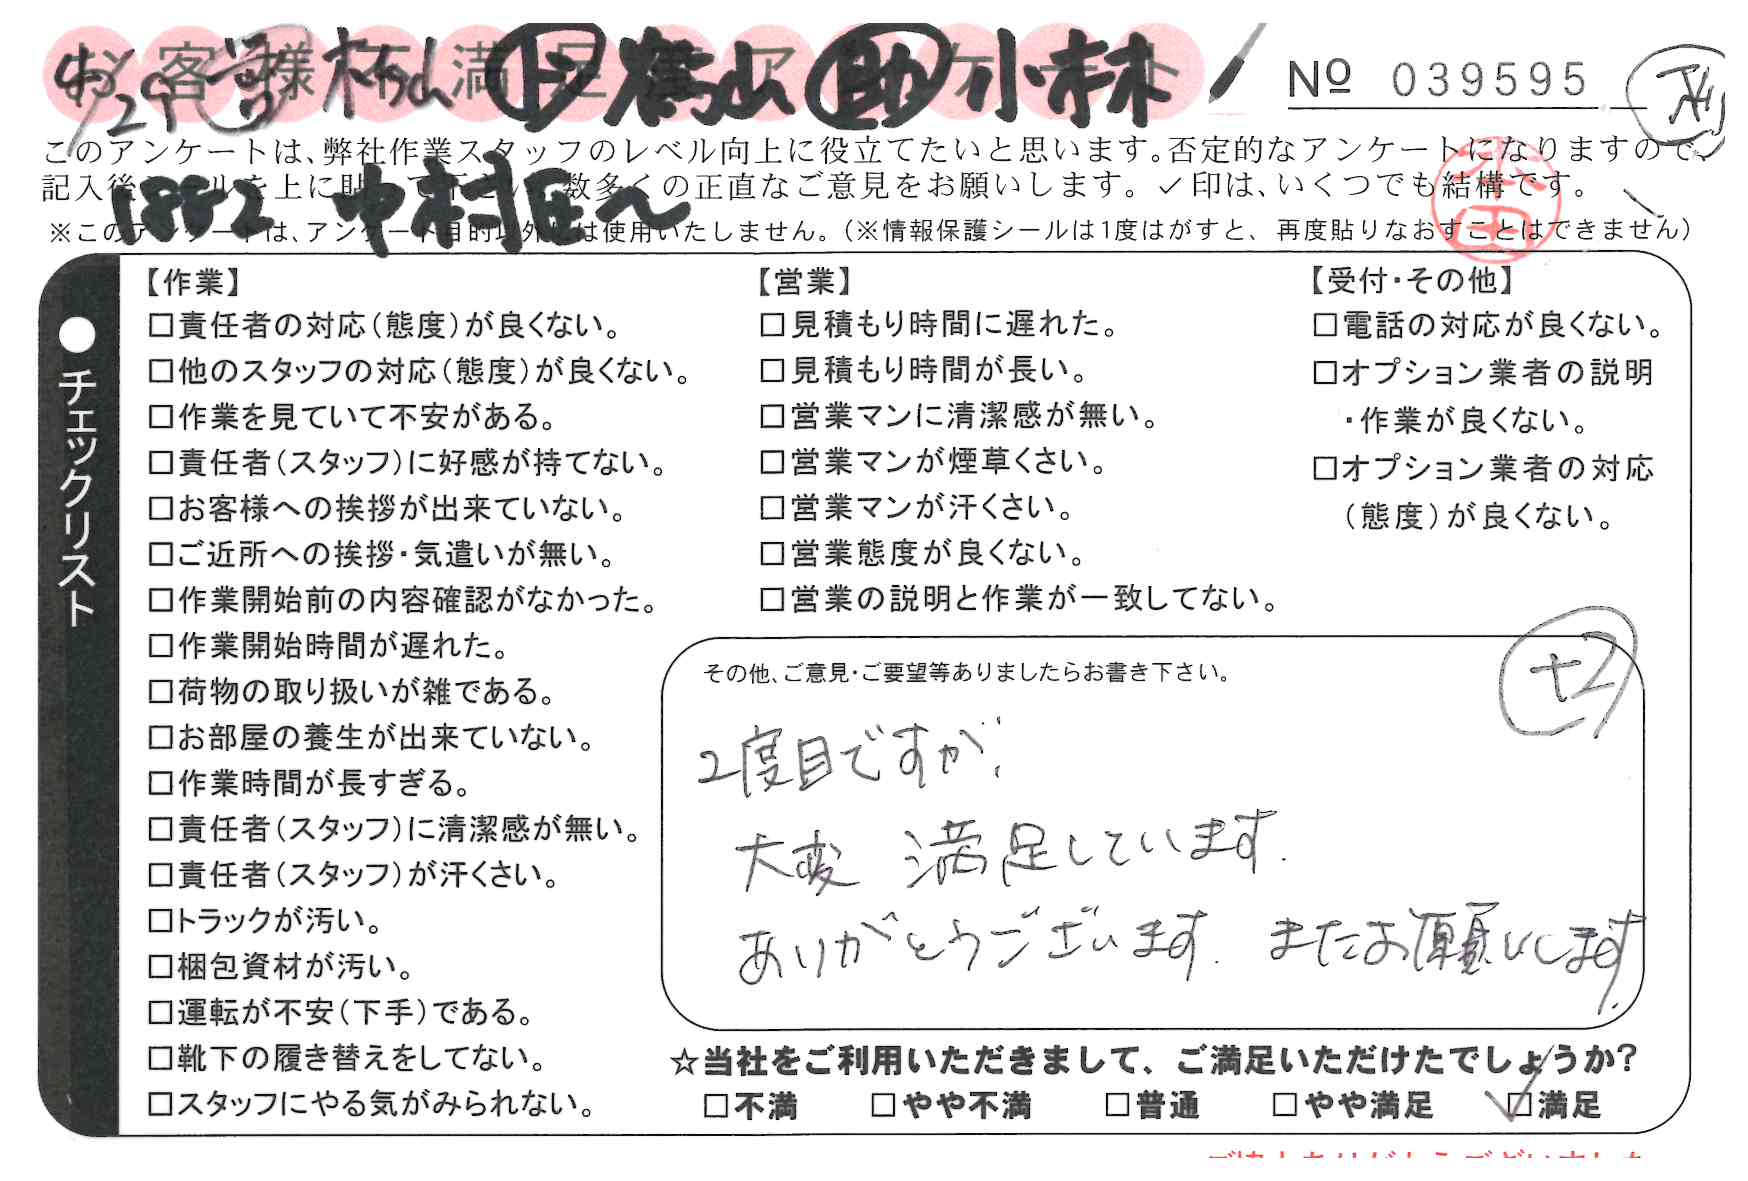 お客様満足度アンケート
№ 039595
4/29 営 杉山 ト 嵩山 助 小林
このアンケートは、弊社作業スタッフのレベル向上に役立てたいと思います。否定的なアンケートになりますので、
記入後シールを上に貼って下さい。数多くの正直なご意見をお願いします。✓印は、いくつでも結構です。
1882 中村
※このアンケートは、アンケート目的以外には使用いたしません。（※情報保護シールは1度はがすと、再度貼りなおすことはできません）
●チェックリスト
【作業】
□責任者の対応（態度）が良くない。
□他のスタッフの対応（態度）が良くない。
□作業を見ていて不安がある。
□責任者（スタッフ）に好感が持てない。
□お客様への挨拶が出来ていない。
□ご近所への挨拶・気遣いが無い。
□作業開始前の内容確認がなかった。
□作業開始時間が遅れた。
□荷物の取り扱いが雑である。
□お部屋の養生が出来ていない。
□作業時間が長すぎる。
□責任者（スタッフ）に清潔感が無い。
□責任者（スタッフ）が汗くさい。
□トラックが汚い。
□梱包資材が汚い。
□運転が不安（下手）である。
□靴下の履き替えをしてない。
□スタッフにやる気がみられない。
【営業】
□見積もり時間に遅れた。
□見積もり時間が長い。
□営業マンに清潔感が無い。
□営業マンが煙草くさい。
□営業マンが汗くさい。
□営業態度が良くない。
□営業の説明と作業が一致してない。
【受付・その他】
□電話の対応が良くない。
□オプション業者の説明
・作業が良くない。
□オプション業者の対応
（態度）が良くない。
その他、ご意見・ご要望等ありましたらお書き下さい。
+2
2度目ですが、
大変 満足しています.
ありがとうございます. またお願いします.
☆当社をご利用いただきまして、ご満足いただけたでしょうか?
□不満 □やや不満 □普通 □やや満足 ☑満足